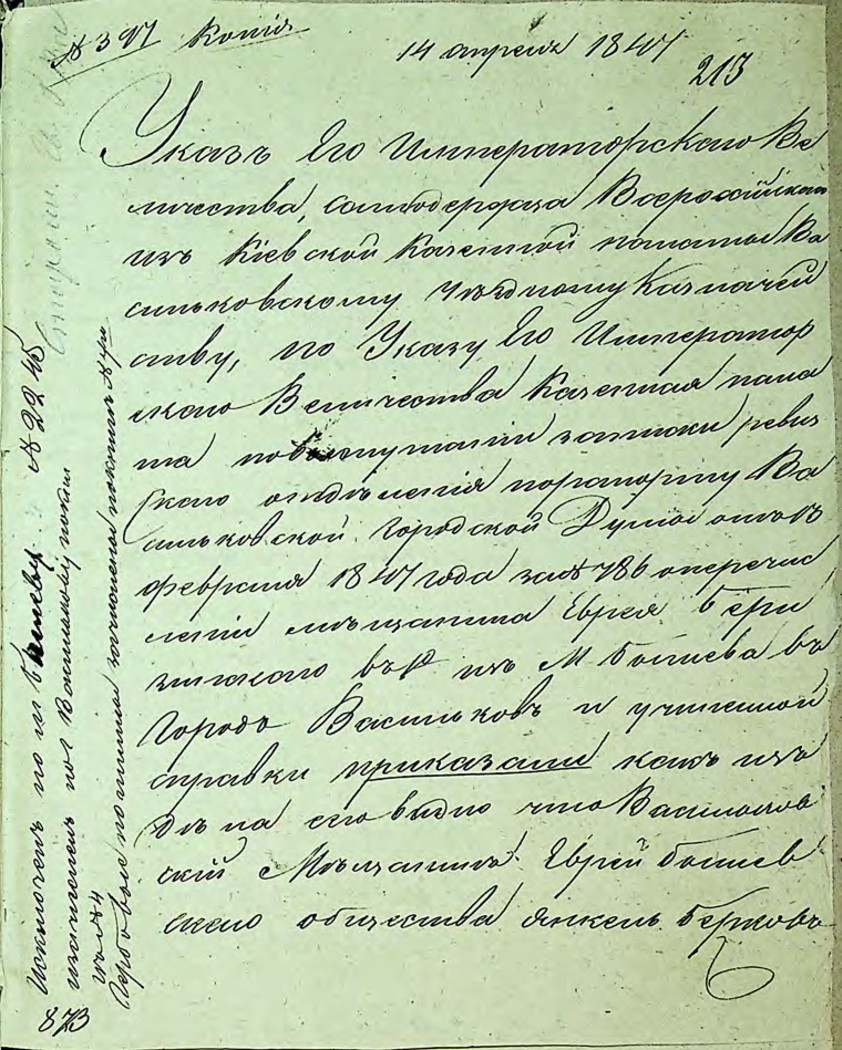 № 397 Копія
14 апрель 1847
213
Указъ Его Императорскаго Ве
личества, самодержца Всероссійскаго
изъ Кіевской Казенной палаты Ва
сильковскому Уѣздному Казначей
ству, по Указу Его Император
скаго Величества Казенная пала
та по слушаніи записки ревиз
скаго отдѣленія порапорту Ва
сильковской Городской Думы отъ
февраля 1847 года за № 786 оперечис
леніи мѣщанина Еврея Бер
въ изъ М Бышева въ
Городъ Васильковъ и учиненной
справки приказали какъ изъ
дѣла сего видно что Василков
скій Мѣщанинъ Еврей Бышев
скаго общества Янкель Берковъ
Исключенъ по м Бышеву № 2245
изчисленъ пог Василькову
№ 4
873